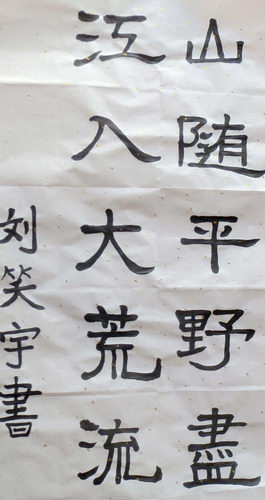 山随平野盡
江入大荒流
刘笑宇書